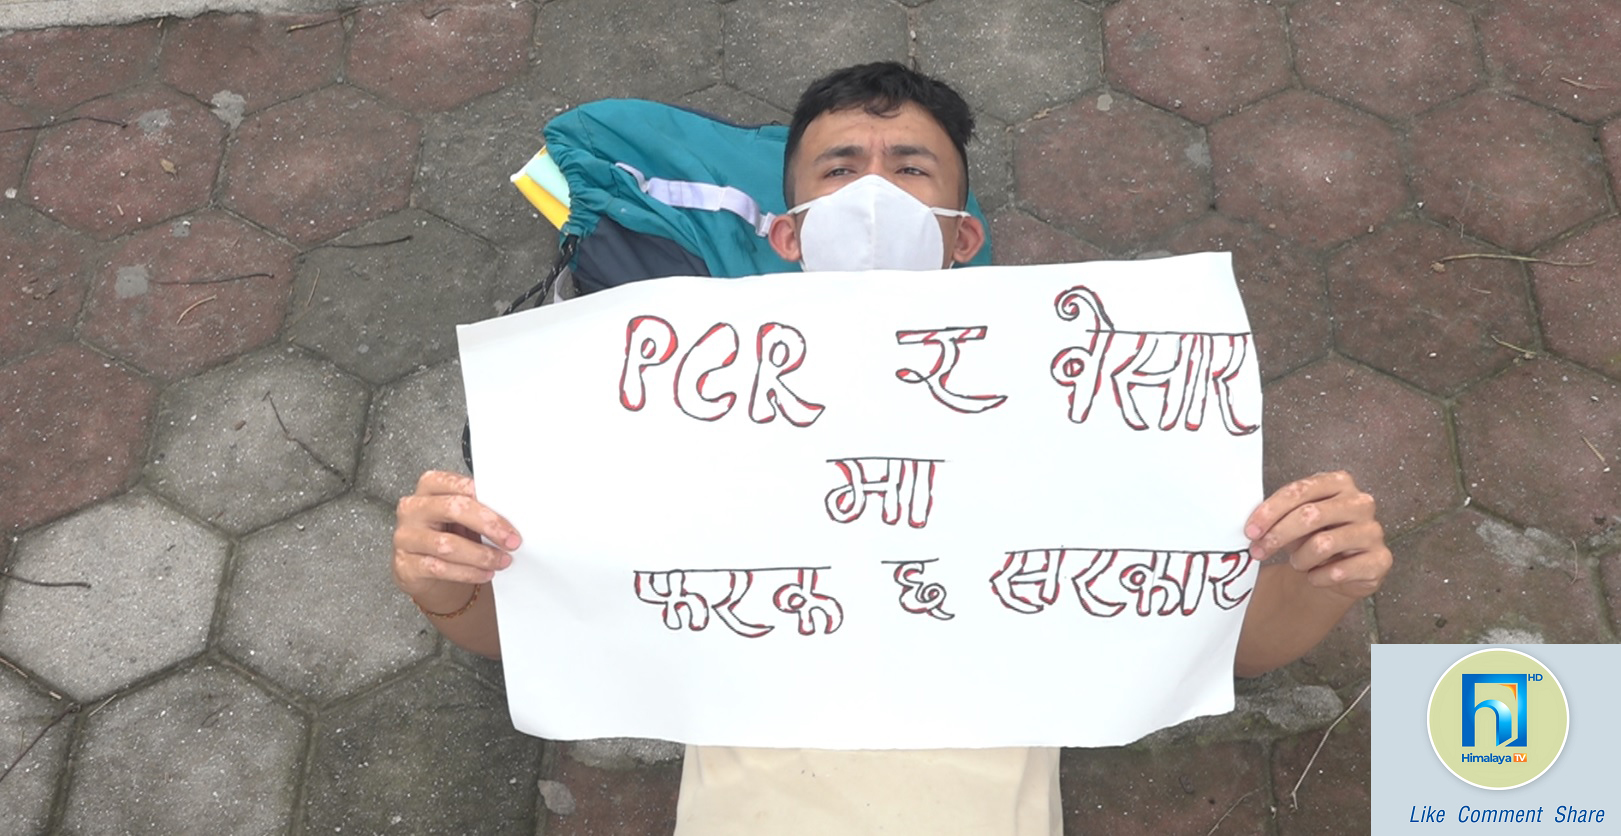 PCR र बेसार
मा
फरक छ सरकार
HD
Himalaya TV
Like Comment Share